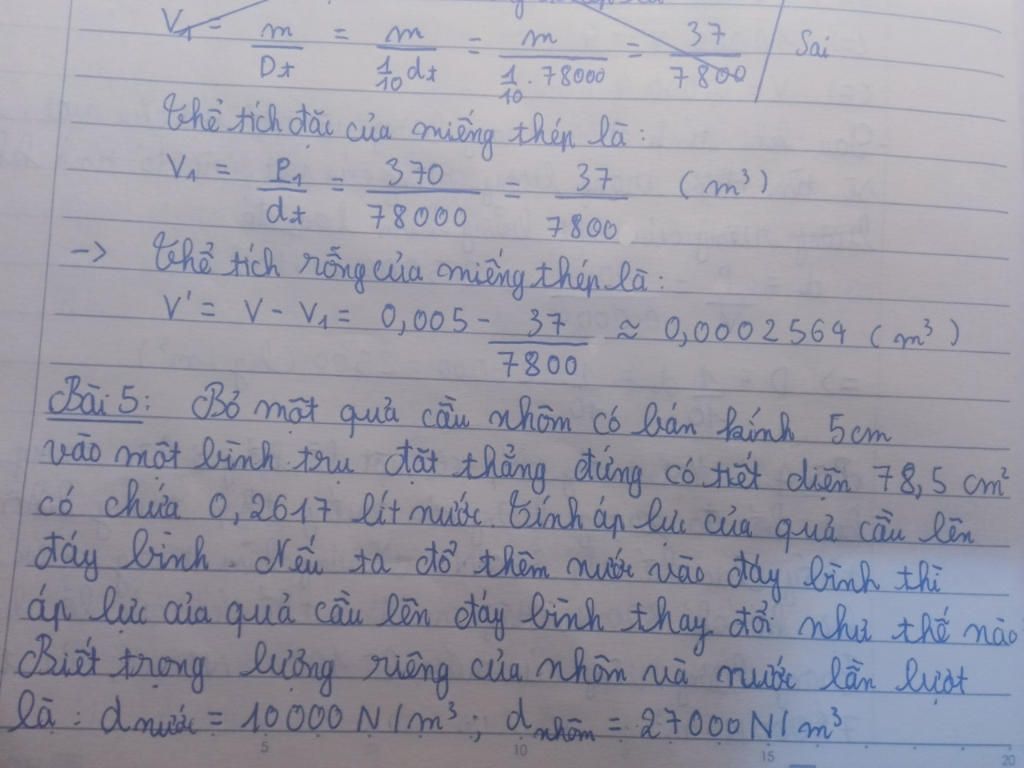 V₁ = m/Dt = m/(1/10 dt) = m/(1/10 . 78000) = 37/7800 Sai
Thể tích đặc của miếng thép là:
V₁ = P₁/dt = 370/78000 = 37/7800 (m³)
-> Thể tích rỗng của miếng thép là:
V' = V - V₁ = 0,005 - 37/7800 ≈ 0,0002564 (m³)
Bài 5: Bỏ một quả cầu nhôm có bán kính 5cm
vào một bình trụ đặt thẳng đứng có tiết diện 78,5 cm²
có chứa 0,2617 lít nước. Tính áp lực của quả cầu lên
đáy bình. Nếu ta đổ thêm nước vào đáy bình thì
áp lực của quả cầu lên đáy bình thay đổi như thế nào
Biết trọng lượng riêng của nhôm và nước lần lượt
là : d nước = 10000 N/m³ ; d nhôm = 27000 N/m³
5 10 15 20